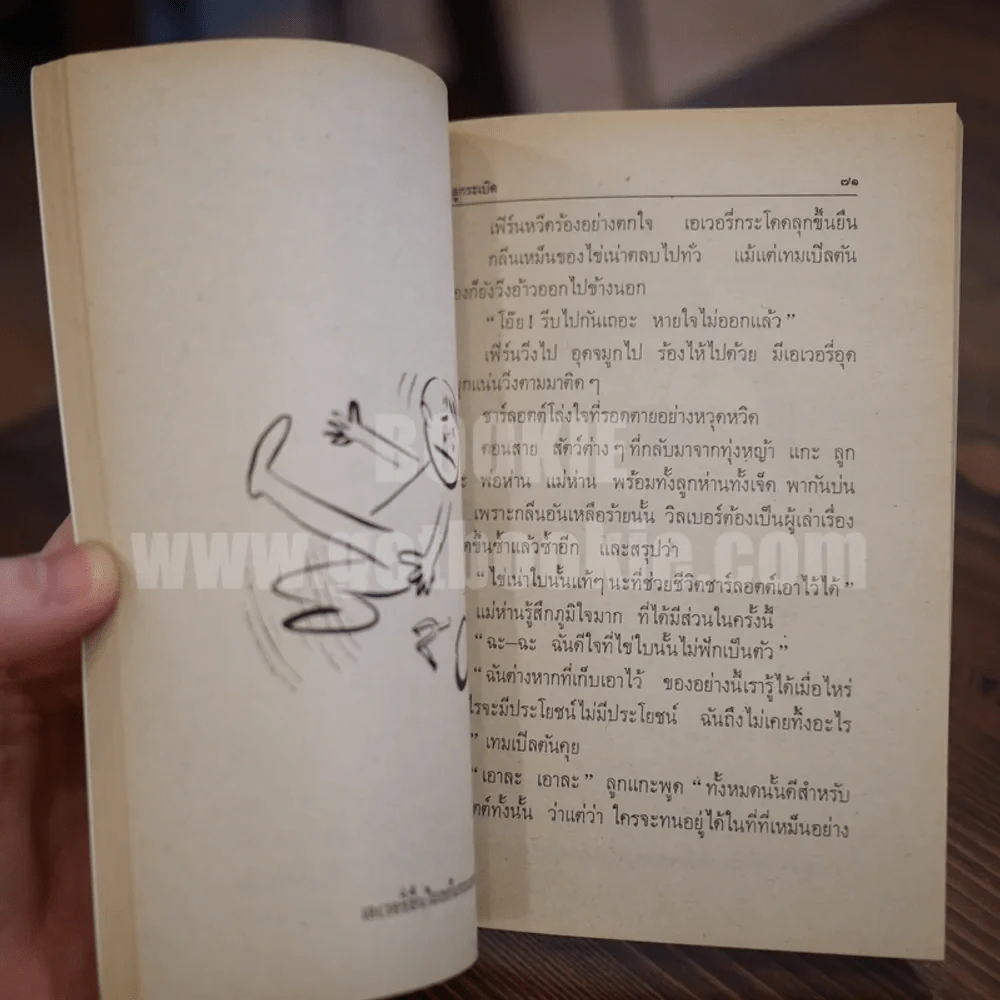 ลูกระเบิด ๗๑
เฟิร์นหวีดร้องอย่างตกใจ เอเวอรี่กระโดดลุกขึ้นยืน
กลิ่นเหม็นของไข่เน่าตลบไปทั่ว แม้แต่เทมเปิลตัน
องก็ยังวิ่งอ้าวออกไปข้างนอก
“โอ๊ย! รีบไปกันเถอะ หายใจไม่ออกแล้ว”
เฟิร์นวิ่งไป อุดจมูกไป ร้องไห้ไปด้วย มีเอเวอรี่อุด
แน่นวิ่งตามมาติดๆ
ชาร์ลอตต์โล่งใจที่รอดตายอย่างหวุดหวิด
ตอนสาย สัตว์ต่างๆ ที่กลับมาจากทุ่งหญ้า แกะ ลูก
พ่อห่าน แม่ห่าน พร้อมทั้งลูกห่านทั้งเจ็ด พากันบ่น
เพราะกลิ่นอันเหลือร้ายนั้น วิลเบอร์ต้องเป็นผู้เล่าเรื่อง
ขึ้นซ้ำแล้วซ้ำอีก และสรุปว่า
“ไข่เน่าใบนั้นแท้ๆ นะที่ช่วยชีวิตชาร์ลอตต์เอาไว้ได้”
แม่ห่านรู้สึกภูมิใจมาก ที่ได้มีส่วนในครั้งนี้
“ฉะ–ฉะ ฉันดีใจที่ไข่ใบนั้นไม่ฟักเป็นตัว”
“ฉันต่างหากที่เก็บเอาไว้ ของอย่างนี้เรารู้ได้เมื่อไหร่
ไรจะมีประโยชน์ไม่มีประโยชน์ ฉันถึงไม่เคยทิ้งอะไร
” เทมเปิลตันคุย
“เอาละ เอาละ” ลูกแกะพูด “ทั้งหมดนั้นดีสำหรับ
ตต์ทั้งนั้น ว่าแต่ว่า ใครจะทนอยู่ได้ในที่ที่เหม็นอย่าง
BOOKIE
www.getbookie.com